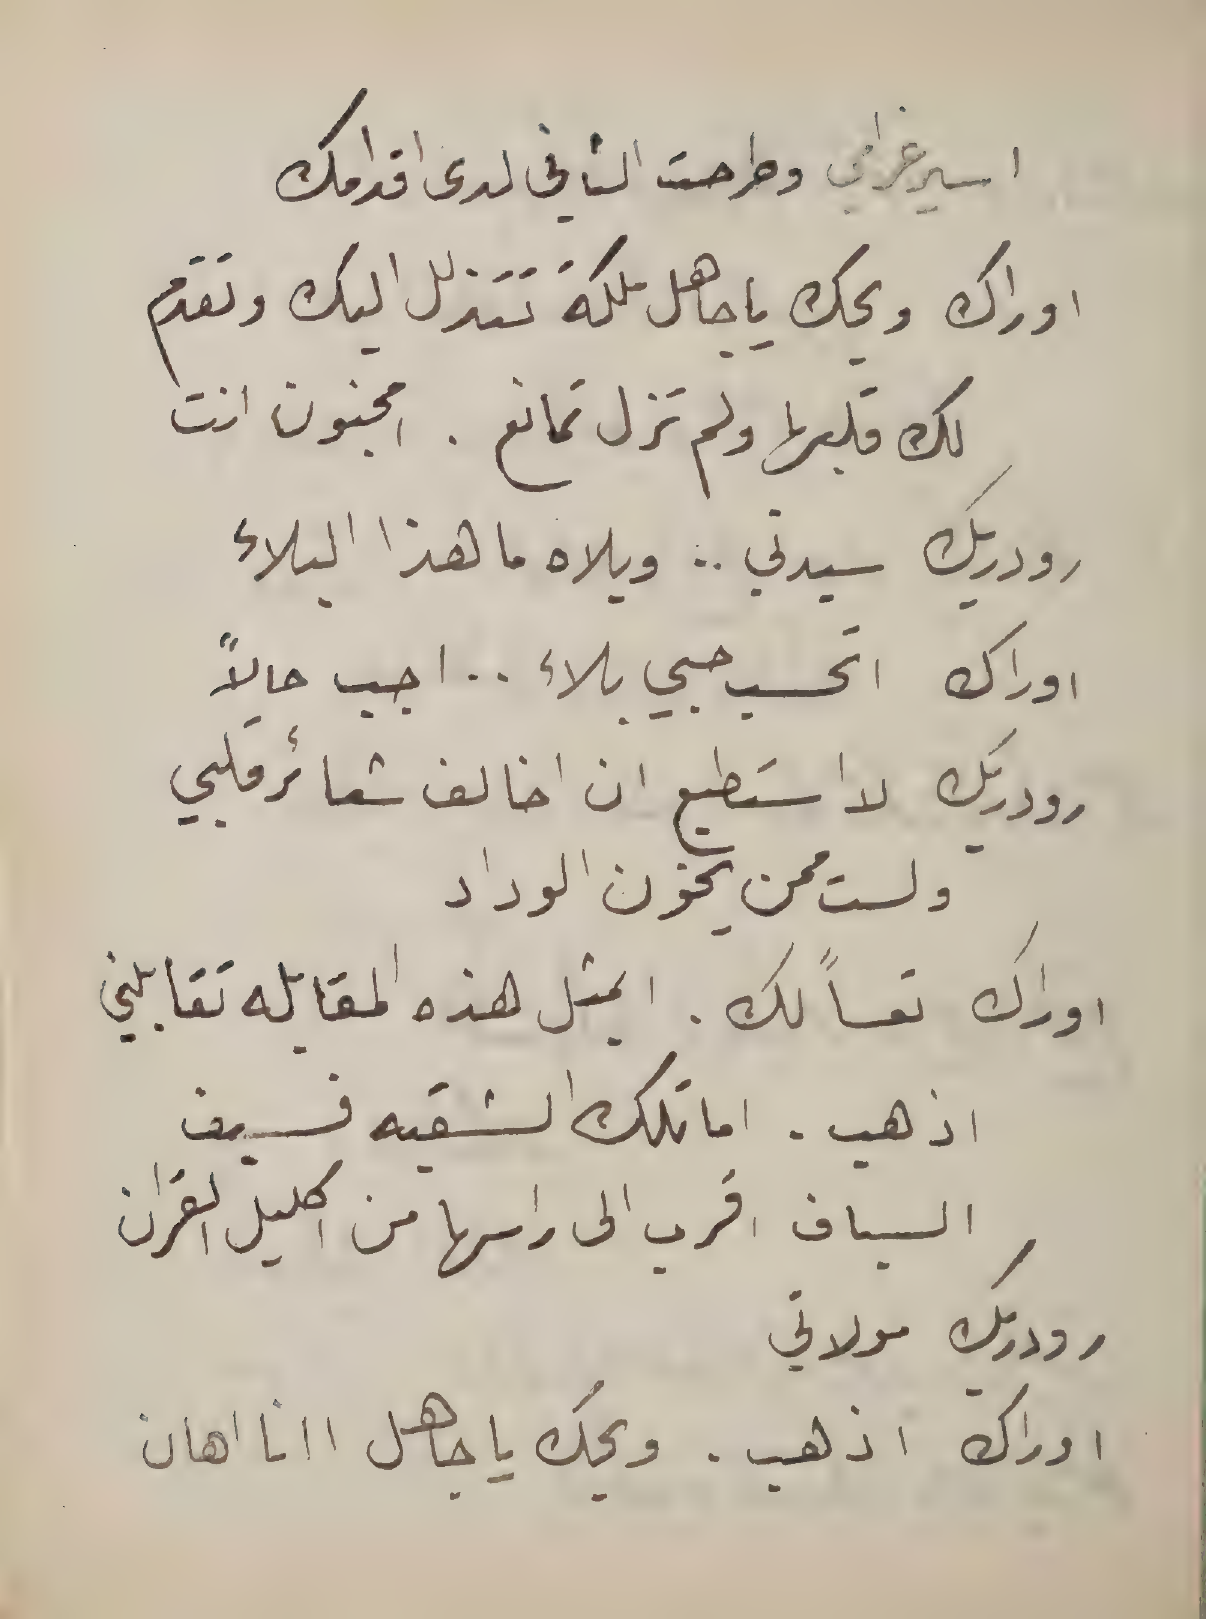 اسير غرامي وطرحت الثاني لدى اقدامك
اوراك ويحك يا جاهل ملكة تتذلل اليك وتقدم
لك قلبها ولم تزل تمانع . امجنون انت
رودريك سيدتي .. ويلاه ما هذا البلاء
اوراك اتحسب حبي بلاء .. اجب حالاً
رودريك لا استطيع ان اخالف شعائر قلبي
ولست ممن يخون الوداد
اوراك تعساً لك . ابمثل هذه المقابله تقابلني
اذهب . اما تلك الشقيه فسيف
السياف اقرب الى راسها من اكليل القران
رودريك مولاتي
اوراك اذهب . ويحك يا جاهل اانا اهان